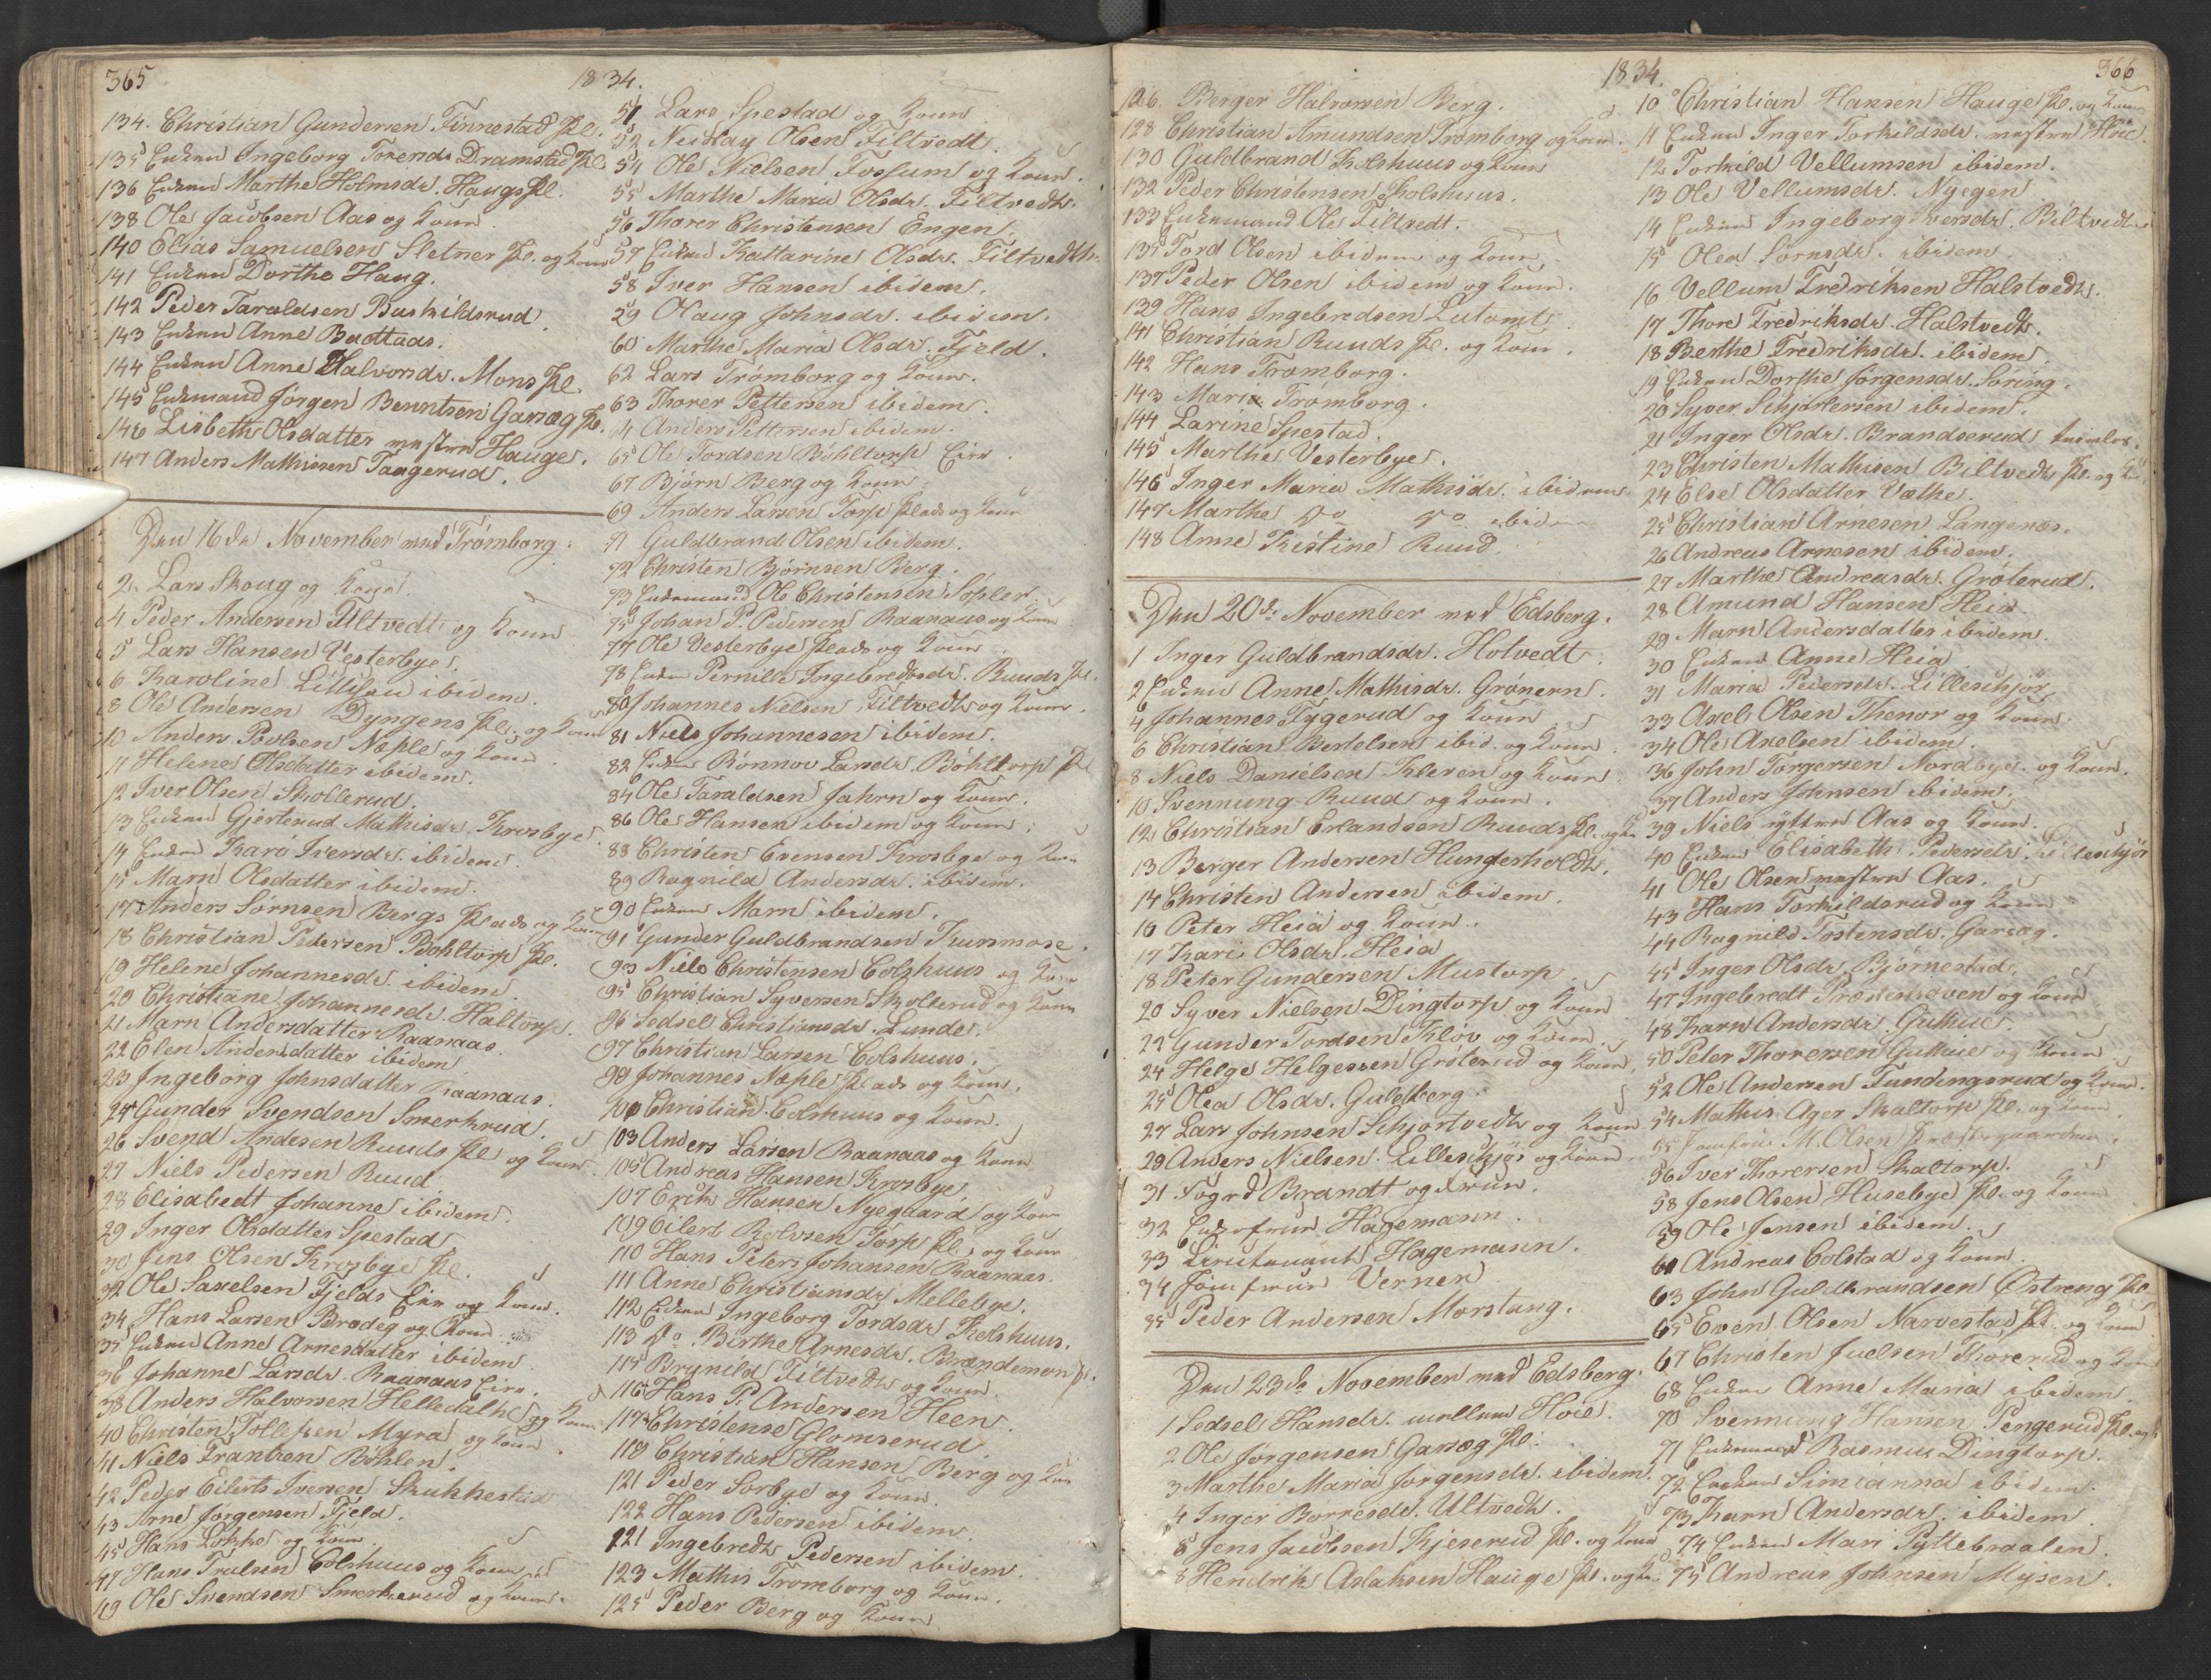 365
1834.
134. Christian Gundersen Finnestad Pl.
135 Enken Ingeborg Torersdr Dramstad Pl.
136 Enken Marthe Holmsdr. Haugs Pl.
138 Ole Jacobsen Aas og Kone
140 Elias Samuelsen Sletner Pl. og Kone
141 Enken Dorthe Haug.
142 Peder Taraldsen Buskildsrud.
143 Enken Anne
144 Enken Anne Halvorsdr. Mons Pl.
145 Enkemand Jørgen Berntsen Garseg Pl.
146 Lisbeth Olsdatter mestre Hauge.
147 Anders Mathisen Taagerud.
Den 16de November ved Trømborg.
2. Lars Skoug og Kone.
4 Peder Andersen Tiltvedt og Kone
5 Lars Hansen Vesterbye.
6 Karoline ibidem.
8 Ole Andersen Dyngens Pl. og Kone
10 Anders Povlsen Næple og Kone
11 Helene Olsdatter ibidem.
12 Iver Olsen Skollerud.
13 Enken Gjerterud Mathisdr. Krosbye.
14 Enken Kari Iversdr. ibidem.
15 Marn Olsdatter ibidem.
17 Anders Sørnsen Bergs Plads og Kone
18 Christian Pedersen Bøhltorp Pl.
19 Helene Johannesdr. ibidem.
20 Christiane Johannesdr. Haltorp.
21 Marn Andersdatter Raanaas.
22 Elen Andersdatter ibidem
23 Ingeborg Johnsdatter Raanaas.
24 Gunder Svendsen Smerkrud.
26 Svend Andersen Ruuds Pl. og Kone.
27 Niels Pedersen Ruud
28 Elisabedt Johanne ibidem.
29 Inger Olsdatter Spestad
30 Jens Olsen Krosbye Pl.
32 Ole Saxelsen Fjelds Eie og Kone.
34 Hans Larsen Brødeg og Kone
35 Enken Anne Arnesdatter ibidem
36 Johanne Larsdr. Raanaas Eie.
38 Anders Halvorsen Helledalhe og Kone
40 Christen Tollefsen Myra og Kone
41 Niels Frantzen Bøhlen.
42 Peder Eilerts Iversen Skukhestad
43 Arne Jørgensen Fjeld.
45 Hans Løkke og Kone
47 Hans Trulsen Colshuus og Kone
49 Ole Svendsen Smerkerud og Kone.
51 Lars Spestad og Kone
52 Nicolay Olsen Tiltvedt.
54 Ole Nielsen Fossum og Kone.
55 Marthe Maria Olsdr. Tiltvedt.
56 Thorer Christensen Engen.
57 Enken Kattarine Olsdr. Tiltvedt.
58 Iver Hansen ibidem.
59 Olaug Johnsdr. ibidem.
60 Marthe Maria Olsdr. Fjeld.
62 Lars Trømborg og Kone.
63 Thorer Pettersen ibidem.
64 Anders Pettersen ibidem.
65 Ole Tordsen Bøhltorp Eie.
67 Bjørn Berg og Kone
69 Anders Larsen Torp Plads og Kone
71 Guldbrand Olsen ibidem.
72 Christen Bjørnsen Berg.
73 Enkemand Ole Christensen Sopler.
75 Johan P. Pedersen Raanaas og Kone
77 Ole Vesterbye Plads og Kone
78 Enken Pernille Ingebredsdr. Ruuds Pl.
80 Johannes Nielsen Tiltvedt og Kone.
81 Niels Johannesen ibidem.
82 Enken Rønnov Larsdr. Bøhltorp Pl
84 Ole Taraldsen Jahrn og Kone.
86 Ole Hansen ibidem og Kone.
88 Christen Evensen Krosbye og Kone
89 Ragnild Andersdr. ibidem.
90 Enken Marn ibidem.
91 Gunder Guldbrandsen Kursmose.
93 Niels Christensen Colshuus og Kone
95 Christian Syversen Skollerud og Kone
96 Sedsel Christiansdr. Lunde.
97 Christian Larsen Colshuus.
99 Johannes Næple Plads og Kone.
101 Christian Colshuus og Kone.
103 Anders Larsen Raanaas og Kone
105 Andreas Hansen Krosbye
107 Erik Hansen Nyegaard og Kone
109 Eilert Rolvsen Torp Pl. og Kone
110 Hans Peter Johansen Raanaas.
111 Anne Christiansdr. Mellebye.
112 Enken Ingeborg Tordsdr Kolshuus.
113 Do. Birthe Arnesdr. Brendemoen Pl.
115 Brynild Tiltvedt og Kone.
116 Hans P. Andersen Heen
117 Christense Glomserud
119 Christian Hansen Berg og Kone
121 Peder Sorbye og Kone.
122 Hans Pedersen ibidem.
121 Ingebredt Pedersen ibidem.
123 Mathis Trømborg og Kone.
125 Peder Berg og Kone
1834.
366
126. Berger Halvorsen Berg.
128 Christian Amundsen Trømborg og Kone.
130 Guldbrand Kolshuus og Kone
132 Peder Christensen Kolshuus.
133 Enkemand Ole Tiltvedt.
135 Tord Olsen ibidem og Kone
137 Peder Olsen ibidem og Kone.
139 Hans Ingebredsen Lutomt
141 Christian Ruuds Pl. og Kone.
142 Hans Trømborg.
143 Maria Trømborg.
144 Larine Spestad.
145 Marthe Vesterbye.
146 Inger Maria Mathisdr. ibidem
147 Marthe Do Do ibidem
148 Anne Kristine Ruud.
Den 20de November ved Edsberg.
1 Inger Guldbrandsdr. Hotvedt.
2 Enken Anne Mathisdr. Grønern.
4 Johannes Tygerud og Kone
6 Christian Bertelsen ibid. og Kone
8 Niels Danielsen Kleven og Kone
10 Svennung Ruud og Kone.
12 Christian Erlandsen Ruuds Pl. og Kone
13 Berger Andersen Hunderholdt.
14 Christen Andersen ibidem.
16 Peter Heia og Kone.
17 Kari Olsdr. Heia
18 Peter Gundersen Mustorp.
20 Syver Nielsen Dingtorp og Kone
22 Gunder Tordsen Kløv og Kone.
24 Helge Helgesen Grøterud og Kone.
25 Olea Olsdr. Guldberg.
27 Lars Johnsen Schjortvedt og Kone
29 Anders Nielsen Lilleschjør og Kone
31 Fogrd Brandt og Frue.
32 Enkefrue Hagemann.
33 Lieutenant Hagemann.
34 Jomfrue Verner
35 Peder Andersen Morstang.
Den 23de November ved Edsberg.
1 Sedsel Hansdr. mellem Hoie.
2 Ole Jørgensen Garseg Pl.
3 Marthe Maria Jørgensdr. ibidem.
4 Inger Børresdr. Ultvedt.
6 Jens Jacobsen Kjeserud Pl. og Kone
8 Hendrik Aslaksen Hauge Pl. og Kone
10 Christian Hansen Hauge Pl. og Kone
11 Enken Inger Torkildsdr. mestre Hoie.
12 Torkild Vellumsen ibidem.
13 Ole Vellumsdr. Nyegen
14 Enken Ingeborg Iversdr. Biltvedt
15 Olea Sørnsdr. ibidem.
16 Vellum Fredriksen Halstvedt.
17 Thore Fredriksdr. Halstvedt.
18 Berthe Fredriksdr. ibidem.
19 Enken Dorthe Jørgensdr. Søring.
20 Syver Schjørtersen ibidem.
21 Inger Olsdr. Brandserud
23 Christen Mathisen Biltvedt Pl. og K
24 Else Olsdatter Vethe.
25 Christian Arnesen Langenæs.
26 Andreas Arnesen ibidem.
27 Marthe Andreasdr. Grøterud.
28 Amund Hansen Heia.
29 Marn Andersdatter ibidem.
30 Enken Anne Heia
31 Maria Pedersdr. Lilleschjør
33 Axel Olsen Thenor og Kone.
34 Ole Axelsen ibidem.
36 John Torgersen Nordbye og Kone.
37 Anders Johnsen ibidem.
39 Niels Aas og Kone.
40 Enken Elisabeth Pedersdr. Lilleschjør
41 Ole Olsen mestre Aas.
43 Hans Torkildsrud og Kone
44 Ragnild Tostensdr. Garseg.
45 Inger Olsdr. Bjørnestad.
47 Ingebredt Præstengeven og Kone
48 Karn Andersdr. Guthue.
50 Peter Thorersen Guthue og Kone
52 Ole Andersen Tundingsrud og Kone.
54 Mathis Ager Skaltorp Pl. og Kone.
55 Jomfrue M. Olsen Præstegaarden.
56 Iver Thorersen Skaltorp.
58 Jens Olsen Husebye Pl. og Kone
59 Ole Jensen ibidem.
61 Andreas Colstad og Kone
63 John Guldbrandsen Østreng Pl.
65 Even Olsen Narvestad Pl. og Kone
67 Christen Juelsen Thorerud og Kone
68 Enken Anne Maria ibidem.
70 Svennung Hansen Pengerud Pl. og K
71 Enkemand Rasmus Dingtorp.
72 Enken Simianna ibidem.
73 Karn Andersdr. ibidem.
74 Enken Mari Pyttebraaten.
75 Andreas Johnsen Mysen.